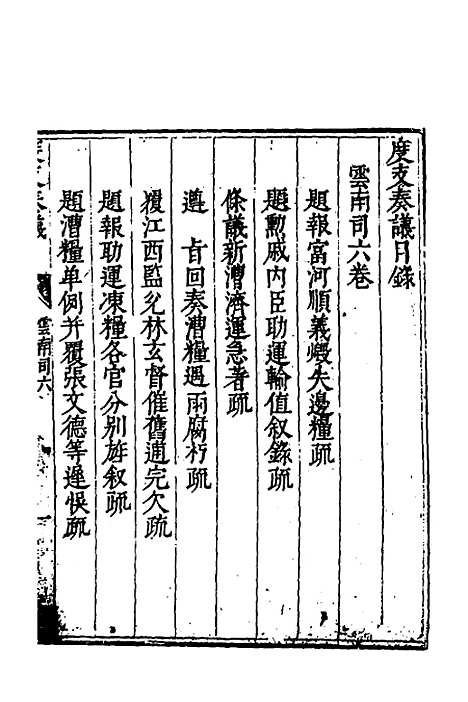 度支奏議目錄
雲南司六卷
題報富河順義燬失邊糧疏
題勲戚內臣助運輸值叙錄疏
條議新漕濟運急著疏
遵 旨回奏漕糧遇雨腐朽疏
覆江西監兌林玄督催舊逋完欠疏
題報助運凍糧各官分別旌叙疏
題漕糧单例并覆張文德等遲悞疏
雲南司六